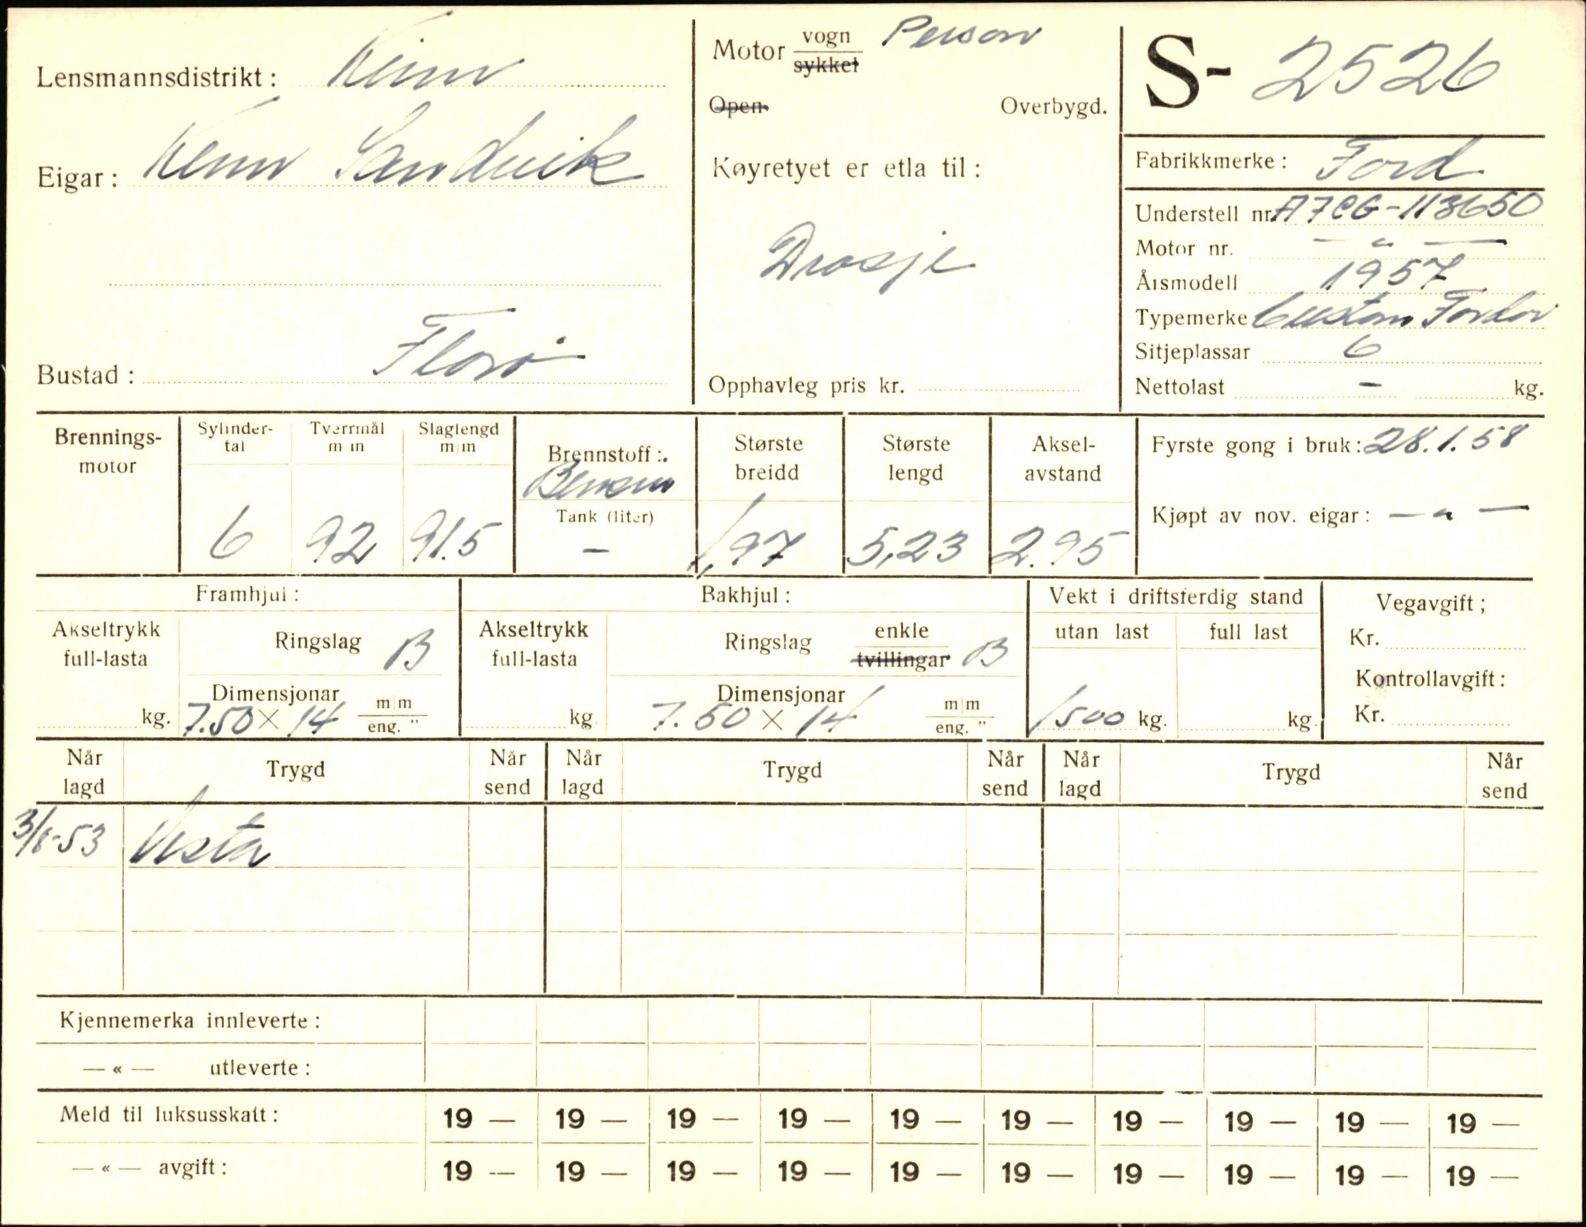 Lensmannsdistrikt: Kinn
Motor vogn Person
sykkel
S- 2526
Open. Overbygd.
Eigar: Sandvik
Køyretyet er etla til:
Drosje
Fabrikkmerke: Ford
Understell nr. A7CG-113650
Motor nr. — " —
Årsmodell 1957
Typemerke Custom Fordor
Sitjeplassar 6
Nettolast – kg.
Bustad: Florø
Opphavleg pris kr.
Brennings-
motor
Sylinder-
tal
6
Tverrmål
m m
92
Slaglengd
m m
91.5
Brennstoff:
Bensin
Tank (liter)
–
Største
breidd
1,97
Største
lengd
5,23
Aksel-
avstand
2.95
Fyrste gong i bruk: 28.1.58
Kjøpt av nov. eigar: — " —
Framhjul:
Akseltrykk
full-lasta
kg.
Ringslag B
Dimensjonar
7.50 × 14 m|m
eng. "
Bakhjul:
Akseltrykk
full-lasta
kg
Ringslag enkle
tvillingar B
Dimensjonar
7.50 × 14 m|m
eng. "
Vekt i driftsferdig stand
utan last full last
1500 kg. kg.
Vegavgift;
Kr.
Kontrollavgift:
Kr.
Når
lagd
Trygd
Når
send
Når
lagd
Trygd
Når
send
Når
lagd
Trygd
Når
send
Vesta
Kjennemerka innleverte:
— « — utleverte:
Meld til luksusskatt: 19 — 19 — 19 — 19 — 19 — 19 — 19 — 19 — 19 — 19 —
— « — avgift: 19 — 19 — 19 — 19 — 19 — 19 — 19 — 19 — 19 — 19 —